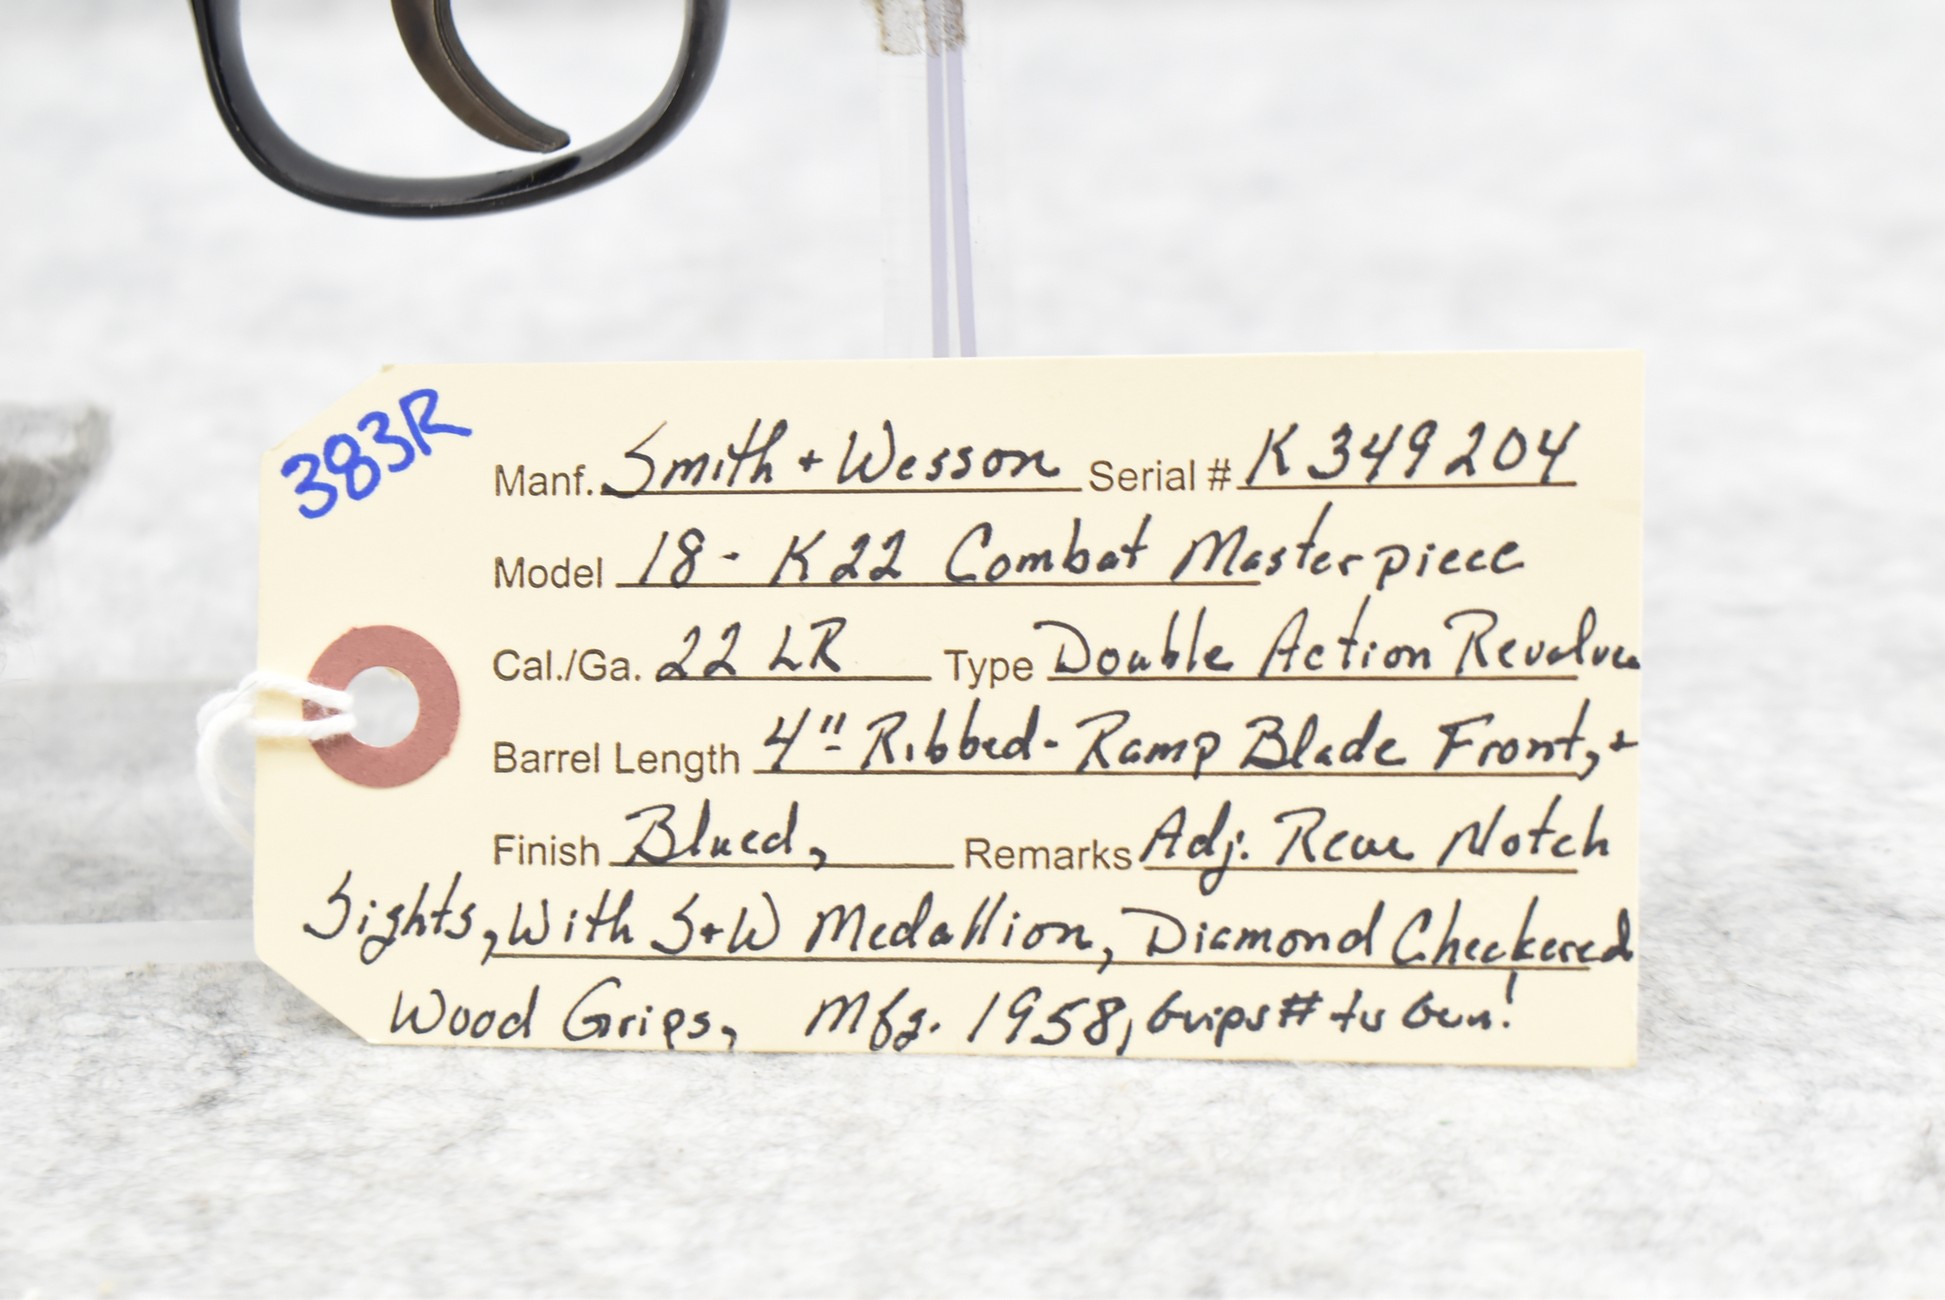 383R
Manf. Smith + Wesson Serial # K349204
Model 18 - K22 Combat Masterpiece
Cal./Ga. 22 LR Type Double Action Revolver
Barrel Length 4" Ribbed - Ramp Blade Front, +
Finish Blued, Remarks Adj. Rear Notch
Sights, With S+W Medallion, Diamond Checkered
Wood Grips, Mfg. 1958, Grips # to Gun!